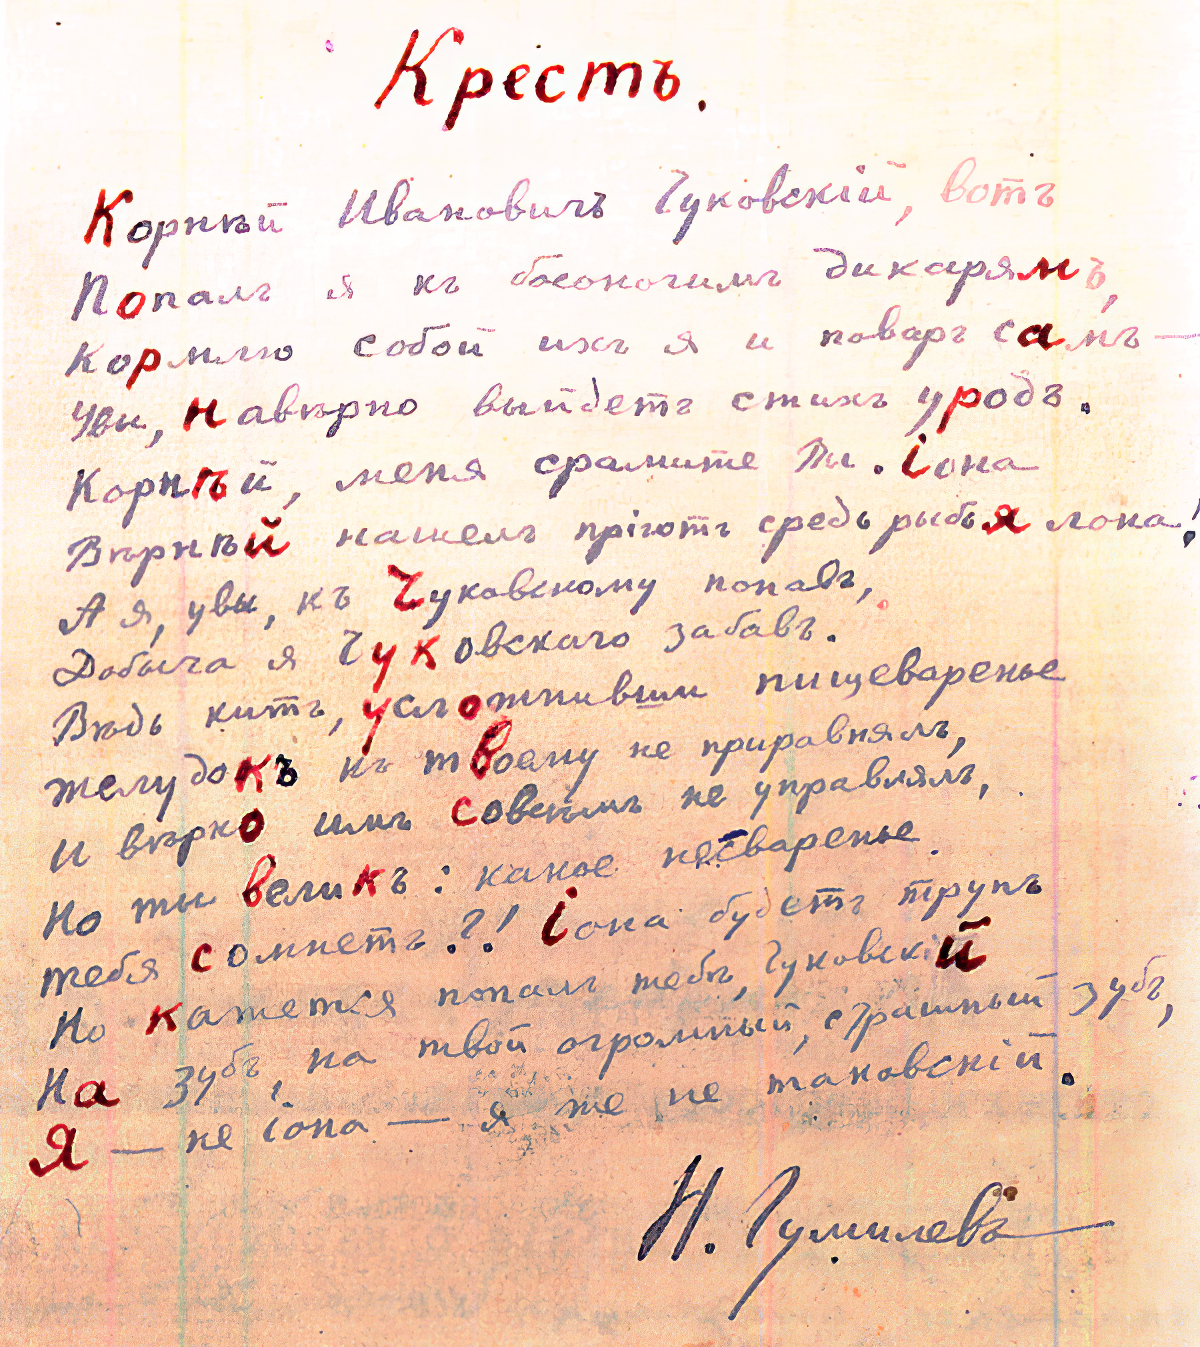 Крестъ.
Корнѣй Ивановичъ Чуковскій, вотъ
Попалъ я къ босоногимъ дикарямъ,
Кормлю собой ихъ я и поваръ самъ —
Увы, навѣрно выйдетъ стихъ уродъ.
Корнѣй, меня срамите Вы. Іона
Вѣрнѣй нашелъ пріютъ средь рыбья лона!
А я, увы, къ Чуковскому попавъ,
Добыча я Чуковскаго забавъ.
Вѣдь китъ, усложнивши пищеваренье
желудокъ къ твоему не приравнялъ,
И вѣрно имъ совсѣмъ не управлялъ,
Но ты великъ: какое несваренье
тебя сомнетъ?! Іона будетъ трупъ
Но кажется попалъ тебѣ, Чуковскій
На зубъ, на твой огромный, страшный зубъ,
Я — не Іона — я же не таковскій.
Н. Гумилевъ